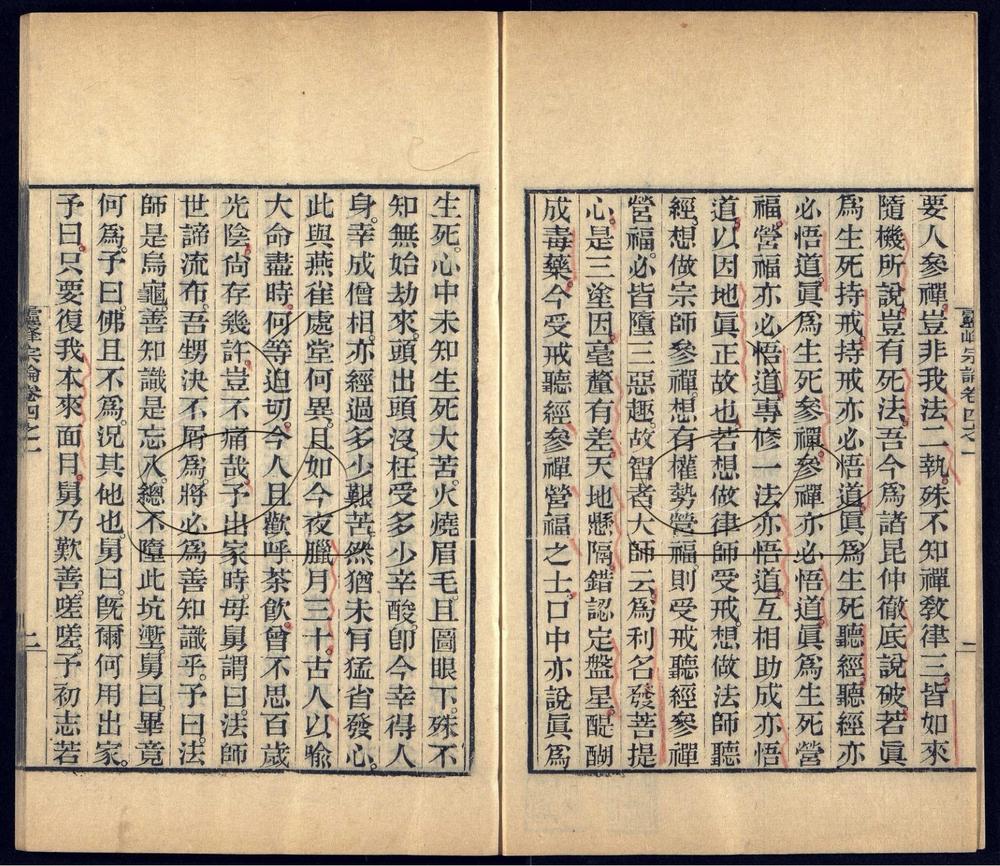 要人參禪。豈非我法二執。殊不知禪敎律三。皆如來
隨機所說。豈有死法。吾今爲諸昆仲徹底說破。若眞
爲生死持戒。持戒亦必悟道。眞爲生死聽經。聽經亦
必悟道。眞爲生死參禪。參禪亦必悟道。眞爲生死營
福。營福亦必悟道。專修一法亦悟道。互相助成亦悟
道。以因地眞正故也。若想做律師受戒。想做法師聽
經。想做宗師參禪。想有權勢營福。則受戒聽經參禪
營福。必皆墮三惡趣。故智者大師云。爲利名發菩提
心。是三塗因。毫釐有差。天地懸隔。錯認定盤星。醍醐
成毒藥。今受戒聽經參禪營福之士。口中亦說眞爲
靈峰宗論卷四之一
生死。心中未知生死大苦。火燒眉毛。且圖眼下。殊不
知無始劫來。頭出頭沒。枉受多少辛酸。卽今幸得人
身。幸成僧相。亦經過多少艱苦。然猶未肎猛省發心。
此與燕雀處堂何異。且如今夜臘月三十。古人以喩
大命盡時。何等迫切。今人且歡呼茶飮。曾不思百歲
光陰。尙存幾許。豈不痛哉。予出家時。母舅謂曰。法師
世諦流布。吾甥決不屑爲。將必爲善知識乎。予曰。法
師是烏龜。善知識是忘八。總不墮此坑塹。舅曰。畢竟
何爲。子曰。佛且不爲。況其他也。舅曰。旣爾何用出家。
予曰。只要復我本來面目。舅乃歎善。嗟嗟。予初志若
靈峰宗論卷四之一